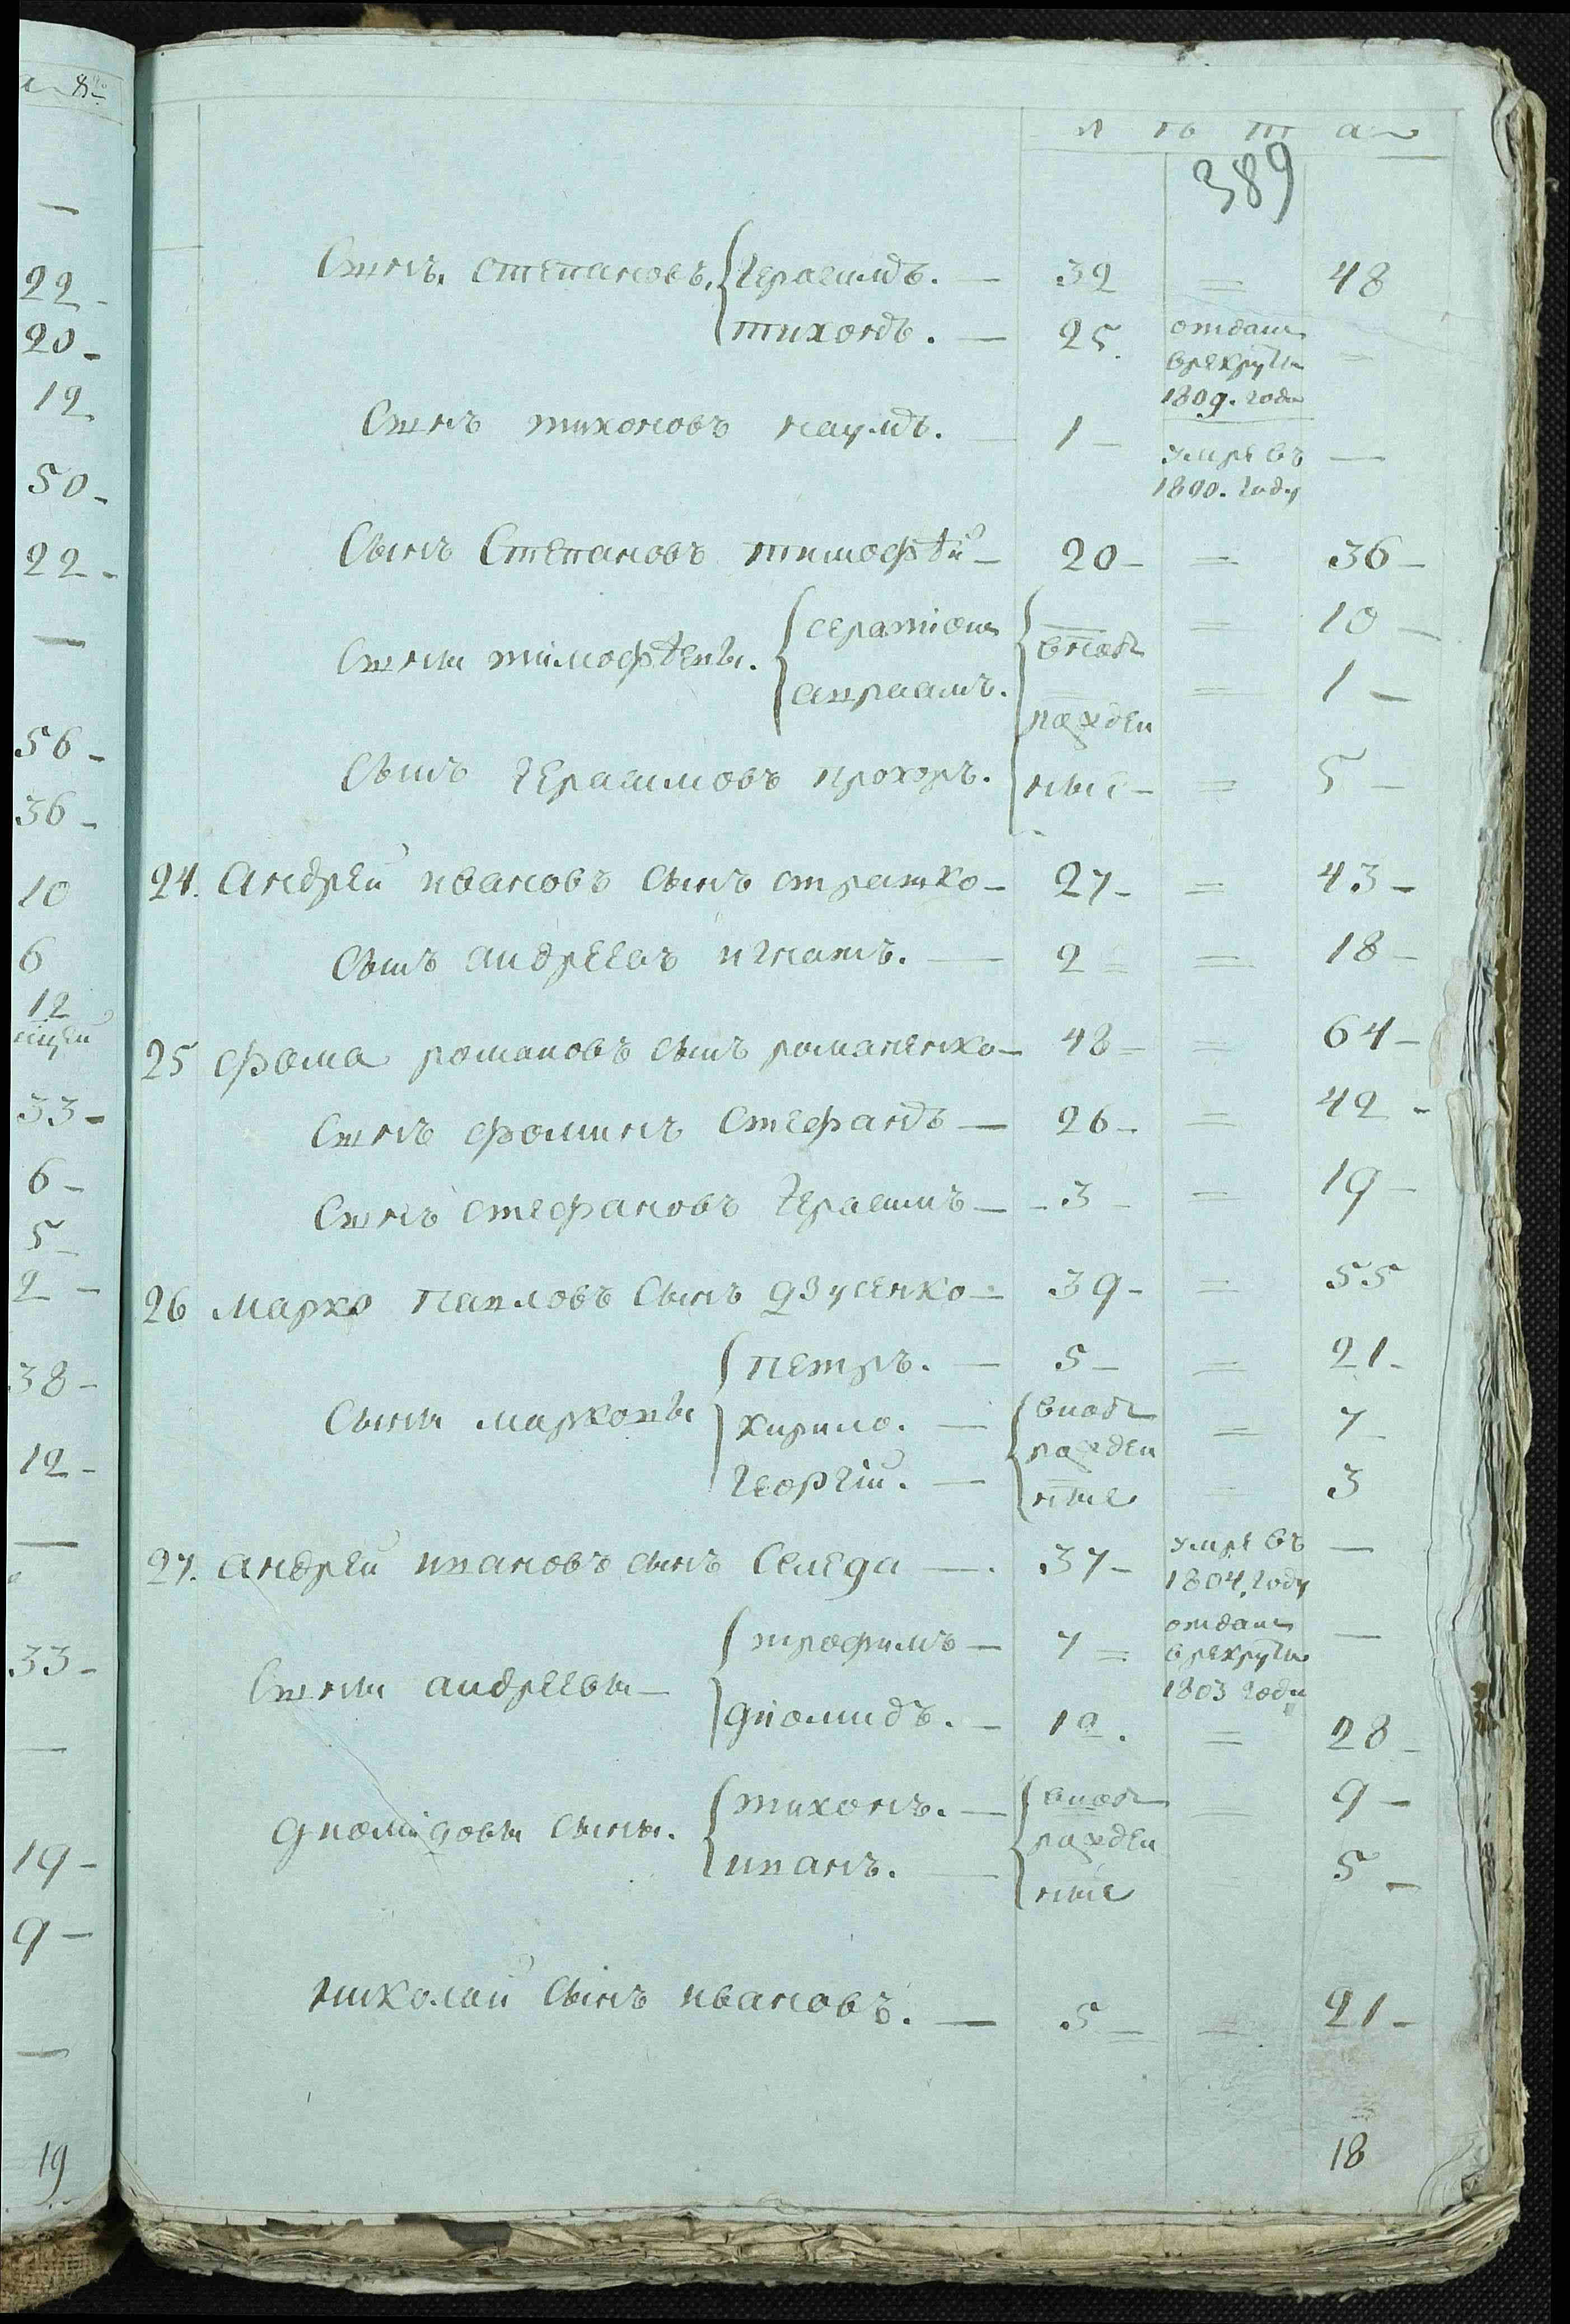 лѣта
389
Сынъ степановъ. герасимъ. — 32 = 48
тихонъ. — 25. отдан врекруты 1809. года =
Сынъ тихоновъ наумъ. — 1 — умре въ 1800. году —
Сынъ Степановъ тимофѣй — 20 — = 36 —
Сыны тимофѣевы. серапион вновь = 10 —
авраамъ. рожден = 1 —
Сынъ герасимовъ прохоръ. ные — = 5 —
24. андрей ивановъ сынъ страшко — 27 — = 43 —
Сынъ андреевъ игнатъ. — 2 = = 18 —
25 фома романовъ сынъ романенко — 48 = = 64 —
Сынъ фоминъ стефанъ — 26 — = 42 —
Сынъ стефановъ герасимъ — 3 — = 19 —
26 марко павловъ сынъ дзусенко — 39 — = 55
петръ. — 5 — = 21 —
Сыны марковы кирило. — вновь рожден = 7 —
георгій. — ные = 3
27. андрей ивановъ сынъ Селеда — 37 — умре въ 1804. году —
трофимъ — 7 = отдан врекруты 1803 году —
Сыны андреевы — диомидъ. — 12. = 28 —
диомидовы сыны. тихонъ. — вновь рожден = 9 —
иванъ. — ные = 5 —
николай сынъ ивановъ. — 5 = = 21 —
18
22 —
20 —
12
50 —
22 —
56 —
36 —
10
6
12
33 —
6 —
5 —
2 —
38 —
12 —
33 —
19 —
9 —
19